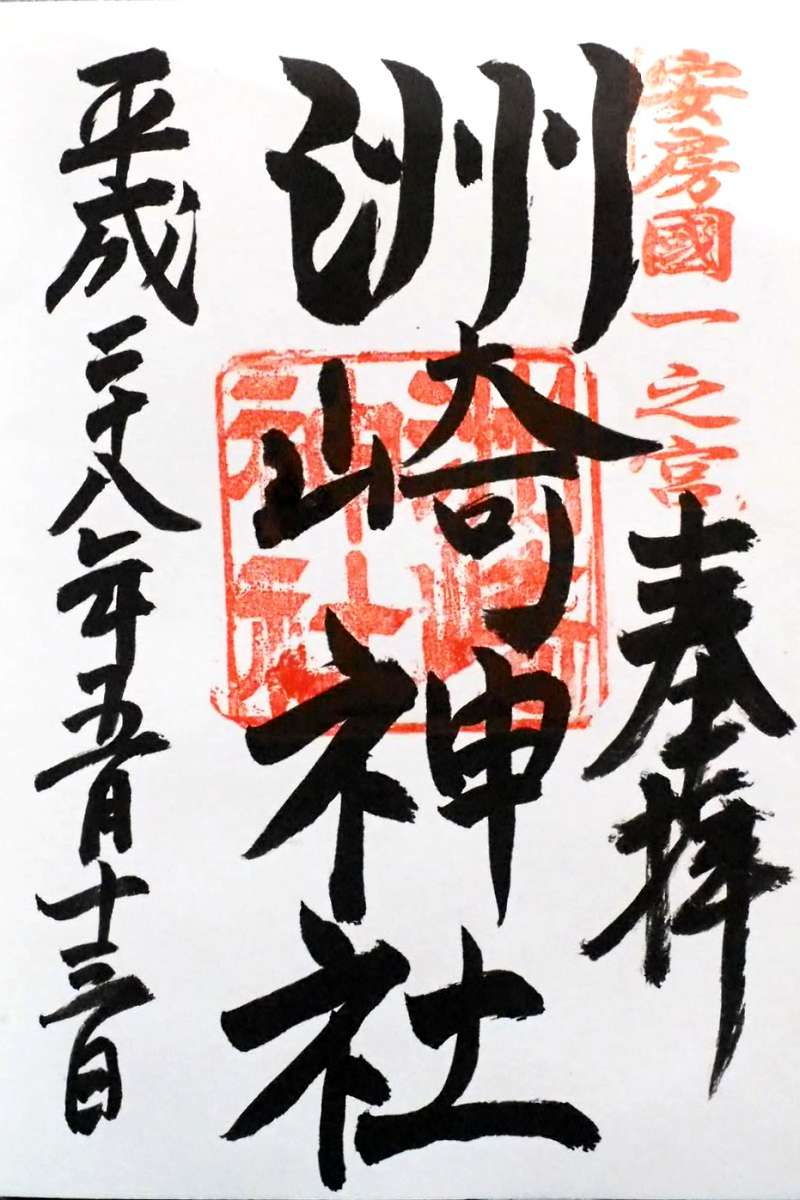 安房國一之宮
奉拝
洲崎神社
洲崎
神社
平成二十八年五月十三日